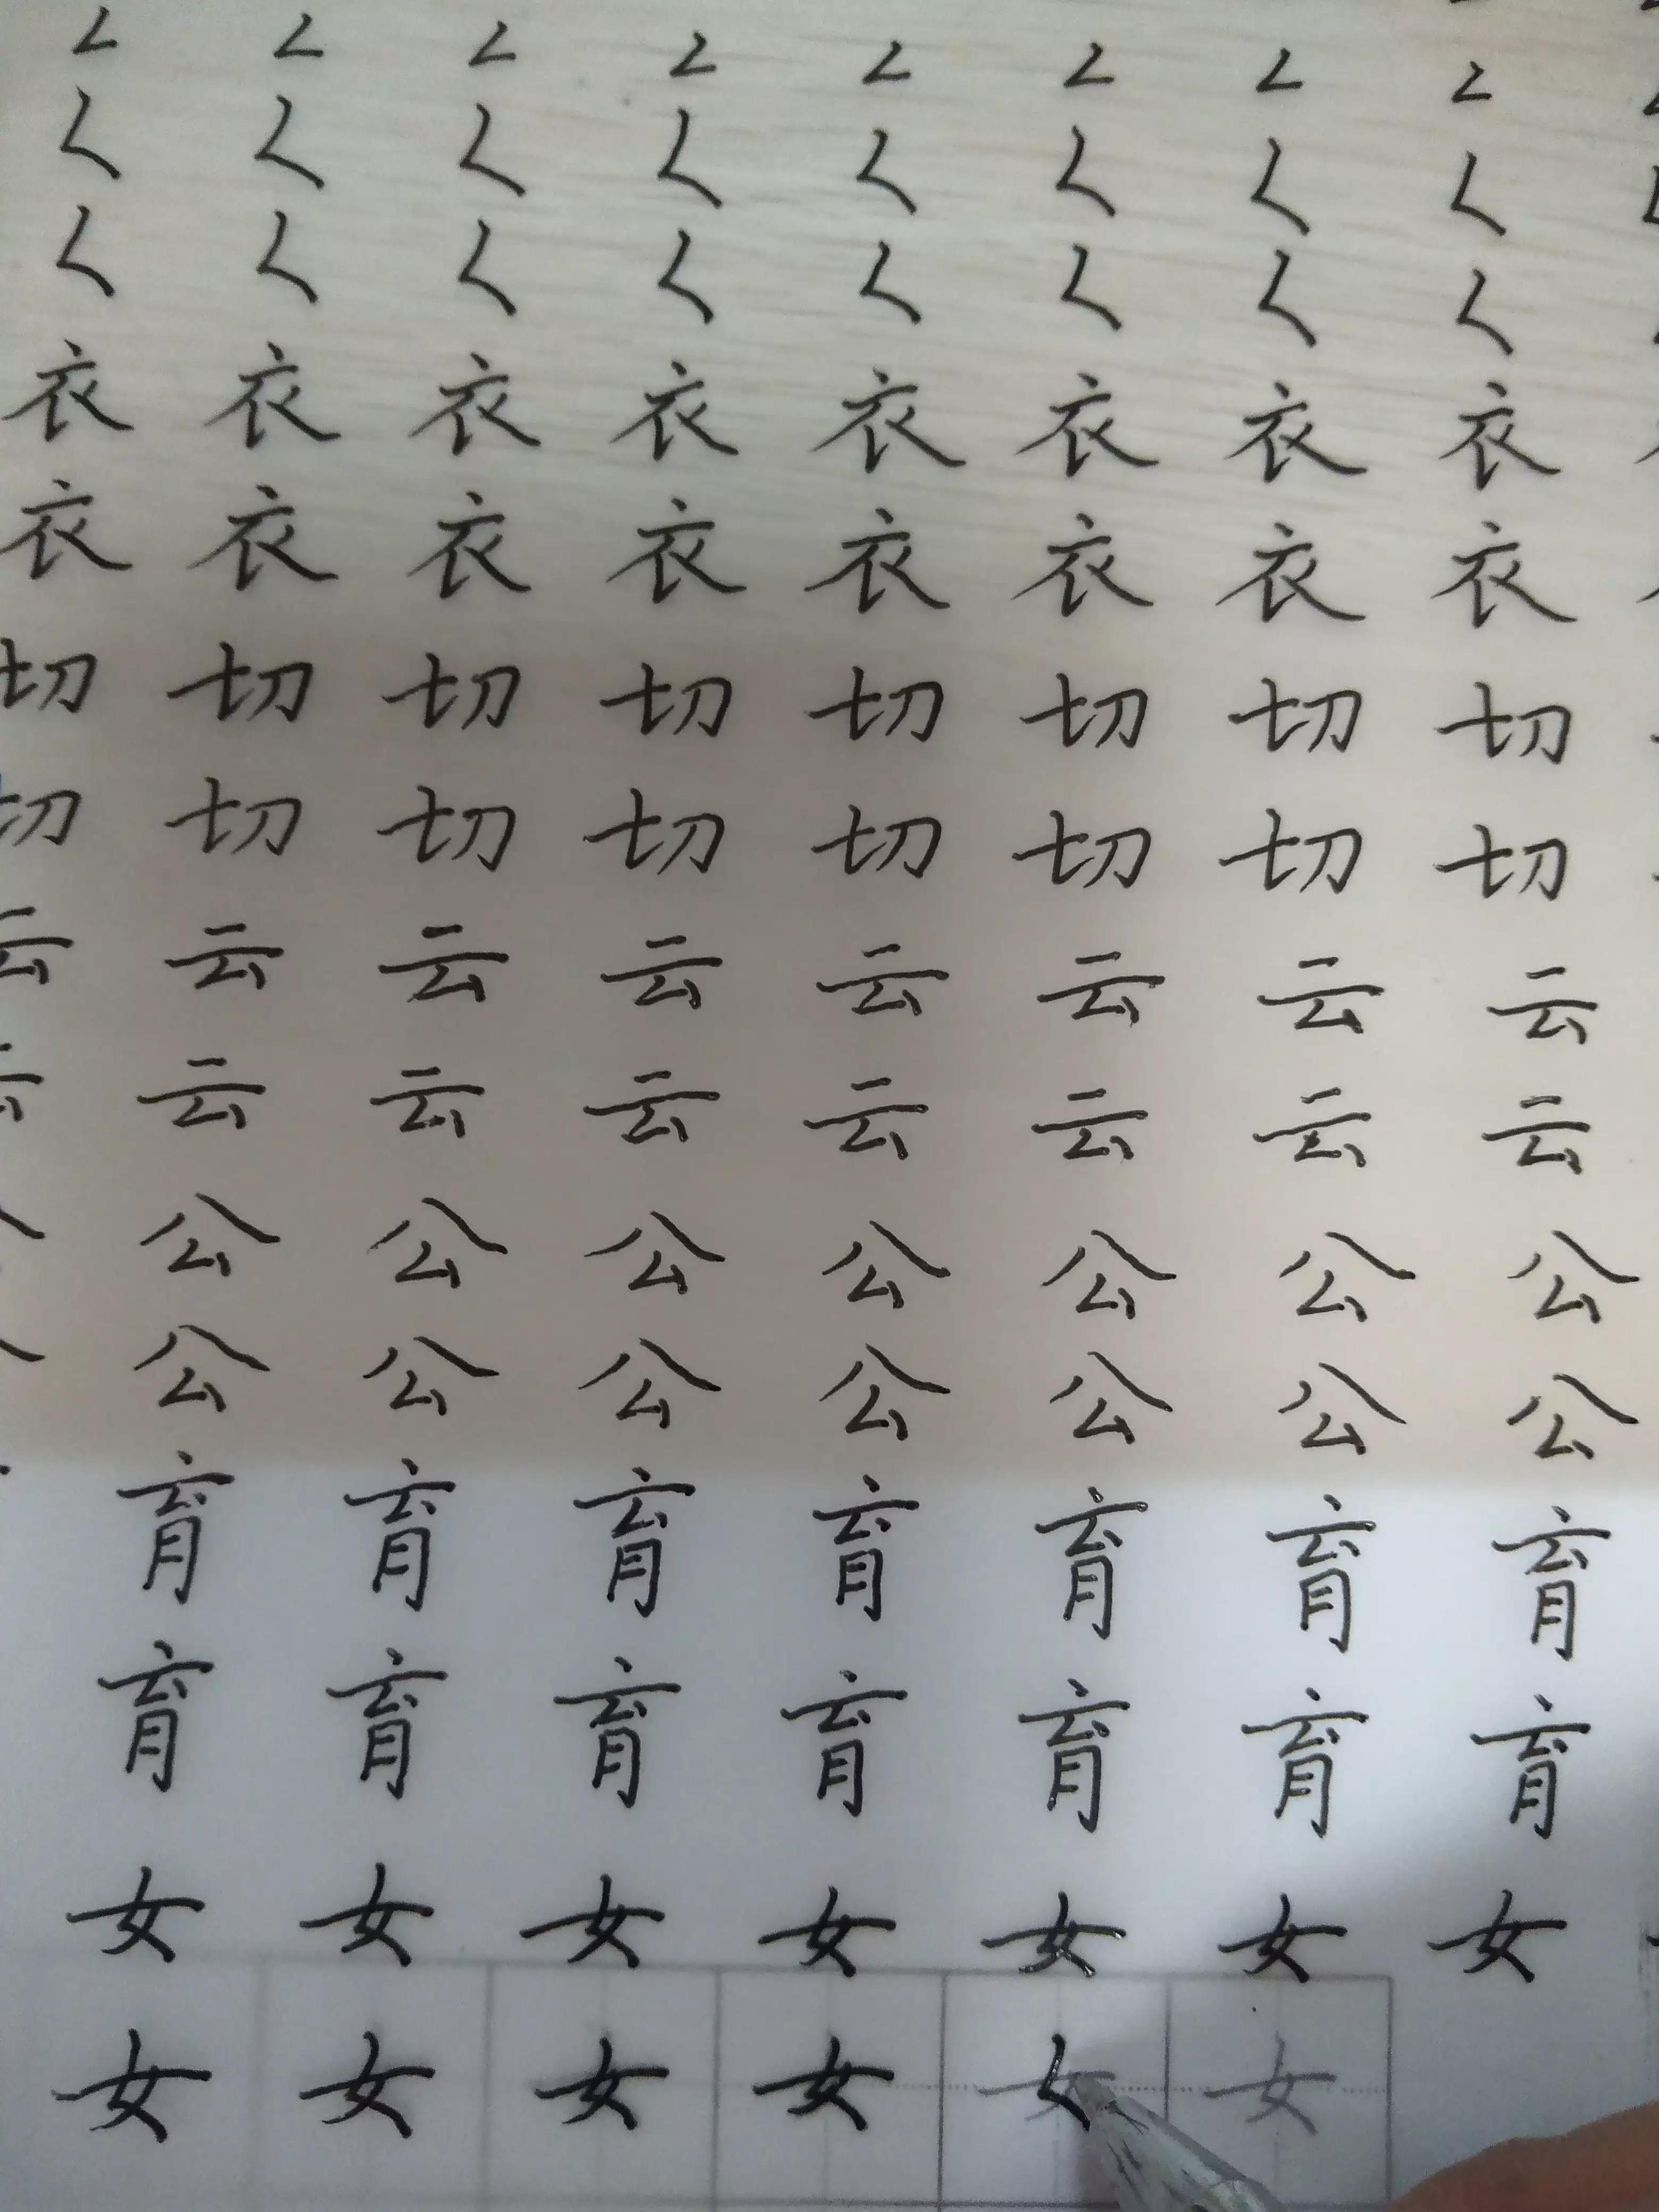 ㇜ ㇜ ㇜ ㇜ ㇜ ㇜ ㇜ ㇜
㇛ ㇛ ㇛ ㇛ ㇛ ㇛ ㇛ ㇛
㇛ ㇛ ㇛ ㇛ ㇛ ㇛ ㇛ ㇛
衣 衣 衣 衣 衣 衣 衣 衣
衣 衣 衣 衣 衣 衣 衣 衣
切 切 切 切 切 切 切 切
切 切 切 切 切 切 切 切
云 云 云 云 云 云 云 云
云 云 云 云 云 云 云 云
公 公 公 公 公 公 公
公 公 公 公 公 公 公
育 育 育 育 育 育 育
育 育 育 育 育 育 育
女 女 女 女 女 女 女
女 女 女 女 女 女